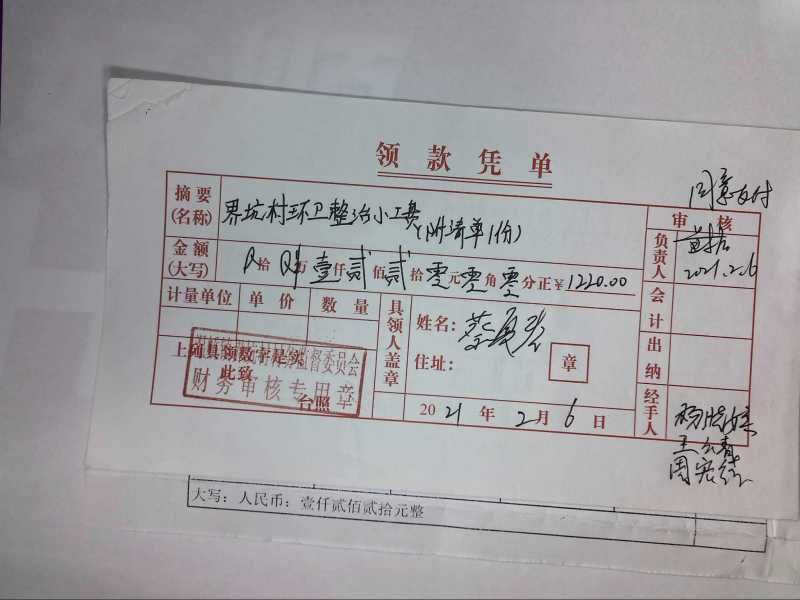 领款凭单
同意支付
摘要(名称) 界坑村环卫整治小工费(附清单1份)
审核
金额(大写) 拾 万壹仟贰佰贰拾零元零角零分正¥1220.00
负责人
2021.2.6
计量单位 单价 数量
具领人盖章
姓名: 蔡
住址:
章
会计
出纳
上列具领数字是实
此致
台照
监督委员会
财务审核专用章
2021年2月6日
经手人
杨
王
周宏
大写:人民币:壹仟贰佰贰拾元整